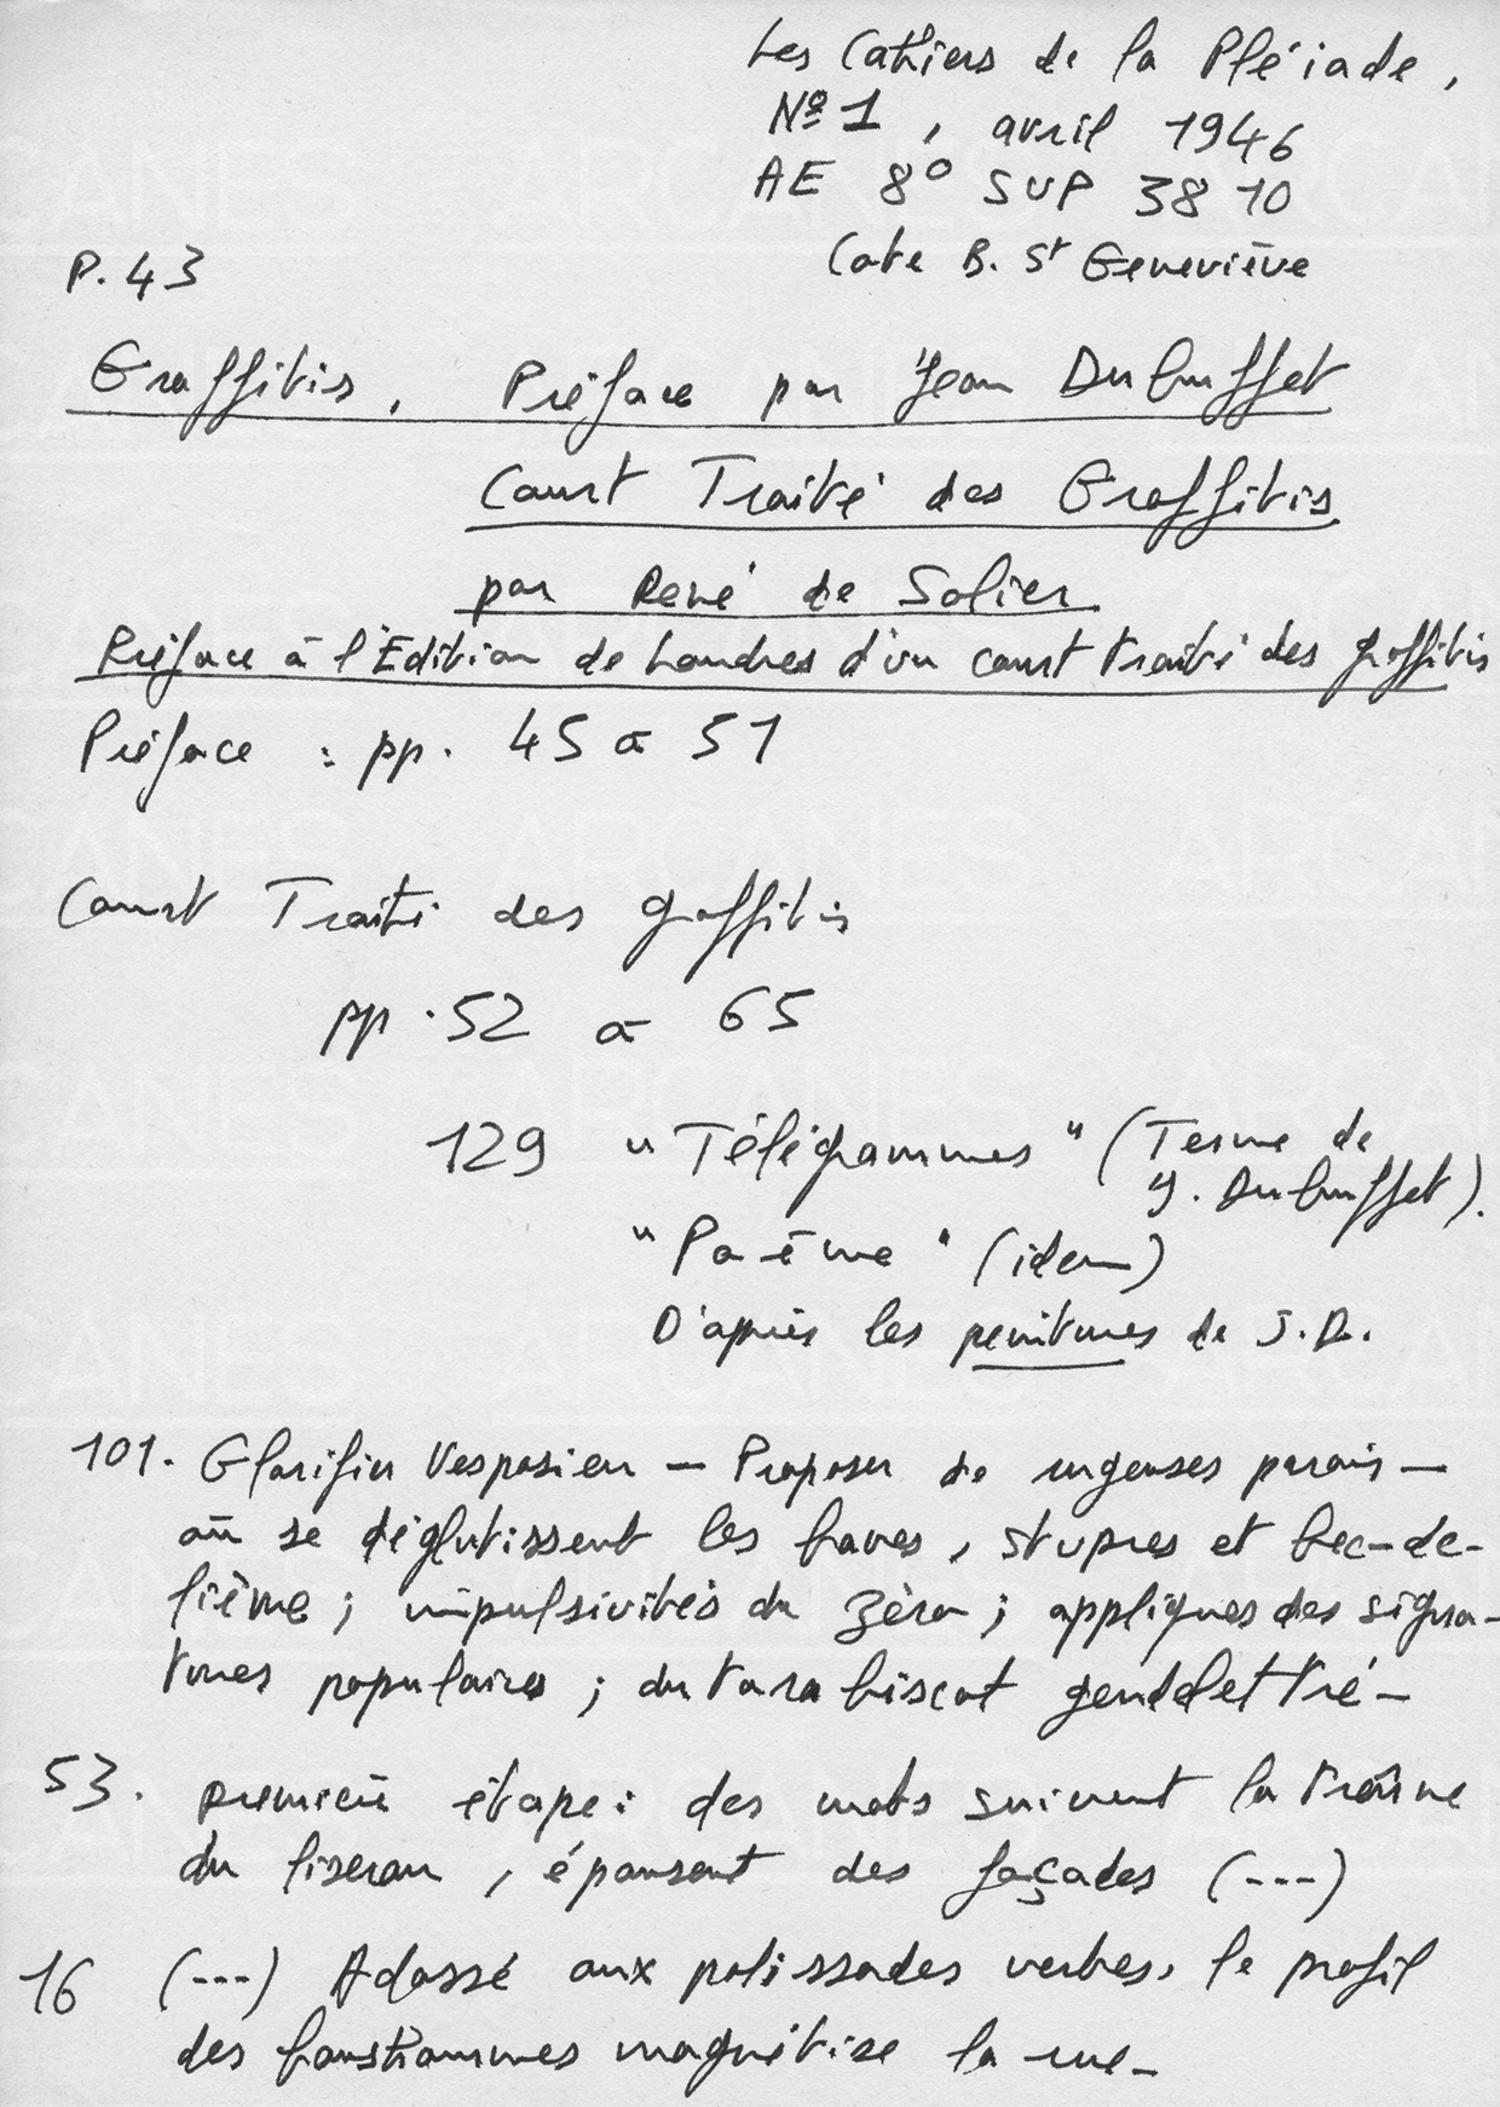 Les Cahiers de la Pléiade,
Nº 1, avril 1946
AE 8º SUP 38 10
Cote B. St Geneviève
P. 43
Graffitis, Préface par Jean Dubuffet
Court Traité des Graffitis
par René de Solier
Préface à l'Edition de Londres d'un court traité des graffitis
Préface : pp. 45 à 51
Court Traité des graffitis
pp. 52 à 65
129 "Télégrammes" (Terme de
J. Dubuffet).
"Poème" (idem)
D'après les peintures de J.D.
101. Glorifier Vespasien — Proposer de rugeuses parois —
où se déglutissent les baves, stupres et bec-de-
lième; impulsivités du zéro; appliques des signa-
tures populaires; du tarabiscot gendelettré —
53. première étape: des mots suivent la traîne
du liseron, épousent des façades (---)
16 (---) Adossé aux palissades verbes, le profil
des magnétise la rue —